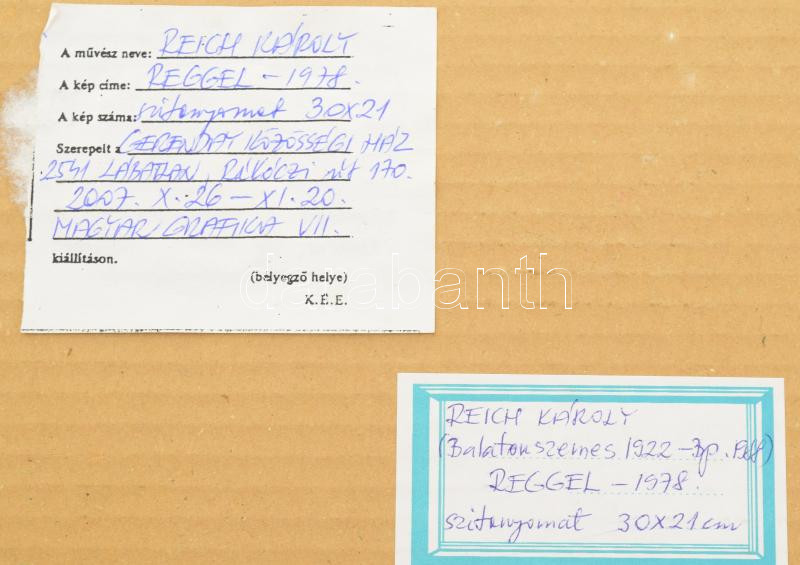 A művész neve: REICH KÁROLY
A kép címe: REGGEL – 1978.
A kép száma: szitanyomat 30x21
Szerepelt a GERENDAY KÖZÖSSÉGI HÁZ
2541 LÁBATLAN, Rákóczi út 170.
2007. X. 26 – XI. 20.
MAGYAR GRAFIKA VII.
kiállításon.
(bélyegző helye)
K.É.E.
darabanth
REICH KÁROLY
(Balatonszemes 1922 – Bp. 1988)
REGGEL – 1978.
szitanyomat 30x21 cm